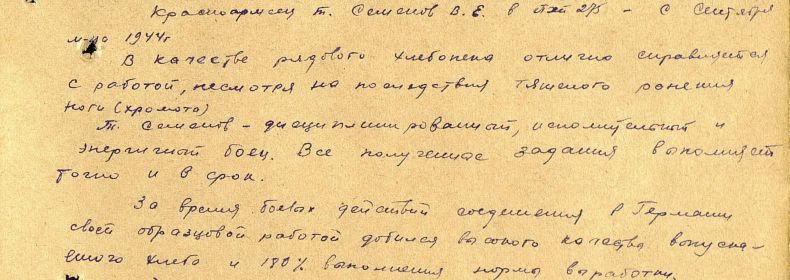 Красноармеец т. Семенов В. Е. в пхп 275 - с сентября
м-ца 1944г
В качестве рядового хлебопека отлично справляется
с работой, несмотря на последствия тяжелого ранения
ноги (хромота)
Т. Семенов - дисциплинированный, исполнительный и
энергичный боец. Все полученные задания выполняет
точно и в срок.
За время боевых действий соединения в Германии
своей образцовой работой добился высокого качества выпускае-
емого хлеба и 180% выполнения нормы выработки.